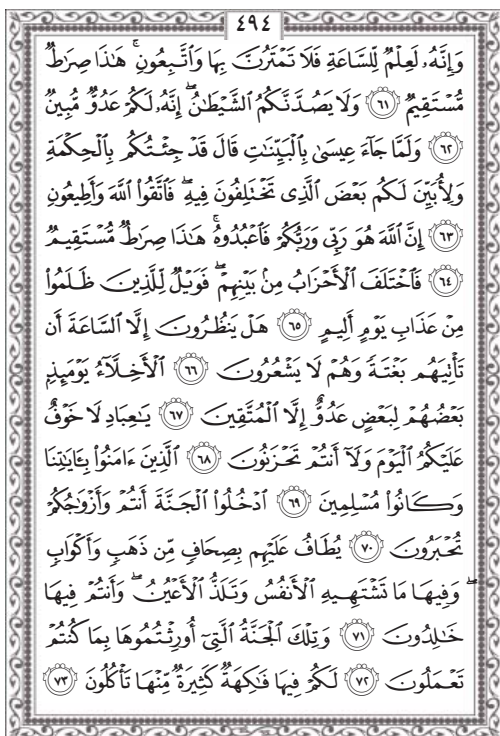 ٤٩٤
وَإِنَّهُۥ لَعِلْمٌ لِّلسَّاعَةِ فَلَا تَمْتَرُنَّ بِهَا وَٱتَّبِعُونِۚ هَٰذَا صِرَٰطٌ
مُّسْتَقِيمٌ ٦١ وَلَا يَصُدَّنَّكُمُ ٱلشَّيْطَٰنُۖ إِنَّهُۥ لَكُمْ عَدُوٌّ مُّبِينٌ
٦٢ وَلَمَّا جَآءَ عِيسَىٰ بِٱلْبَيِّنَٰتِ قَالَ قَدْ جِئْتُكُم بِٱلْحِكْمَةِ
وَلِأُبَيِّنَ لَكُم بَعْضَ ٱلَّذِى تَخْتَلِفُونَ فِيهِۖ فَٱتَّقُوا۟ ٱللَّهَ وَأَطِيعُونِ
٦٣ إِنَّ ٱللَّهَ هُوَ رَبِّى وَرَبُّكُمْ فَٱعْبُدُوهُۚ هَٰذَا صِرَٰطٌ مُّسْتَقِيمٌ
٦٤ فَٱخْتَلَفَ ٱلْأَحْزَابُ مِنۢ بَيْنِهِمْۖ فَوَيْلٌ لِّلَّذِينَ ظَلَمُوا۟
مِنْ عَذَابِ يَوْمٍ أَلِيمٍ ٦٥ هَلْ يَنظُرُونَ إِلَّا ٱلسَّاعَةَ أَن
تَأْتِيَهُم بَغْتَةً وَهُمْ لَا يَشْعُرُونَ ٦٦ ٱلْأَخِلَّآءُ يَوْمَئِذٍۭ
بَعْضُهُمْ لِبَعْضٍ عَدُوٌّ إِلَّا ٱلْمُتَّقِينَ ٦٧ يَٰعِبَادِ لَا خَوْفٌ
عَلَيْكُمُ ٱلْيَوْمَ وَلَآ أَنتُمْ تَحْزَنُونَ ٦٨ ٱلَّذِينَ ءَامَنُوا۟ بِـَٔايَٰتِنَا
وَكَانُوا۟ مُسْلِمِينَ ٦٩ ٱدْخُلُوا۟ ٱلْجَنَّةَ أَنتُمْ وَأَزْوَٰجُكُمْ
تُحْبَرُونَ ٧٠ يُطَافُ عَلَيْهِم بِصِحَافٍ مِّن ذَهَبٍ وَأَكْوَابٍ
ۖ وَفِيهَا مَا تَشْتَهِيهِ ٱلْأَنفُسُ وَتَلَذُّ ٱلْأَعْيُنُۖ وَأَنتُمْ فِيهَا
خَٰلِدُونَ ٧١ وَتِلْكَ ٱلْجَنَّةُ ٱلَّتِىٓ أُورِثْتُمُوهَا بِمَا كُنتُمْ
تَعْمَلُونَ ٧٢ لَكُمْ فِيهَا فَٰكِهَةٌ كَثِيرَةٌ مِّنْهَا تَأْكُلُونَ ٧٣